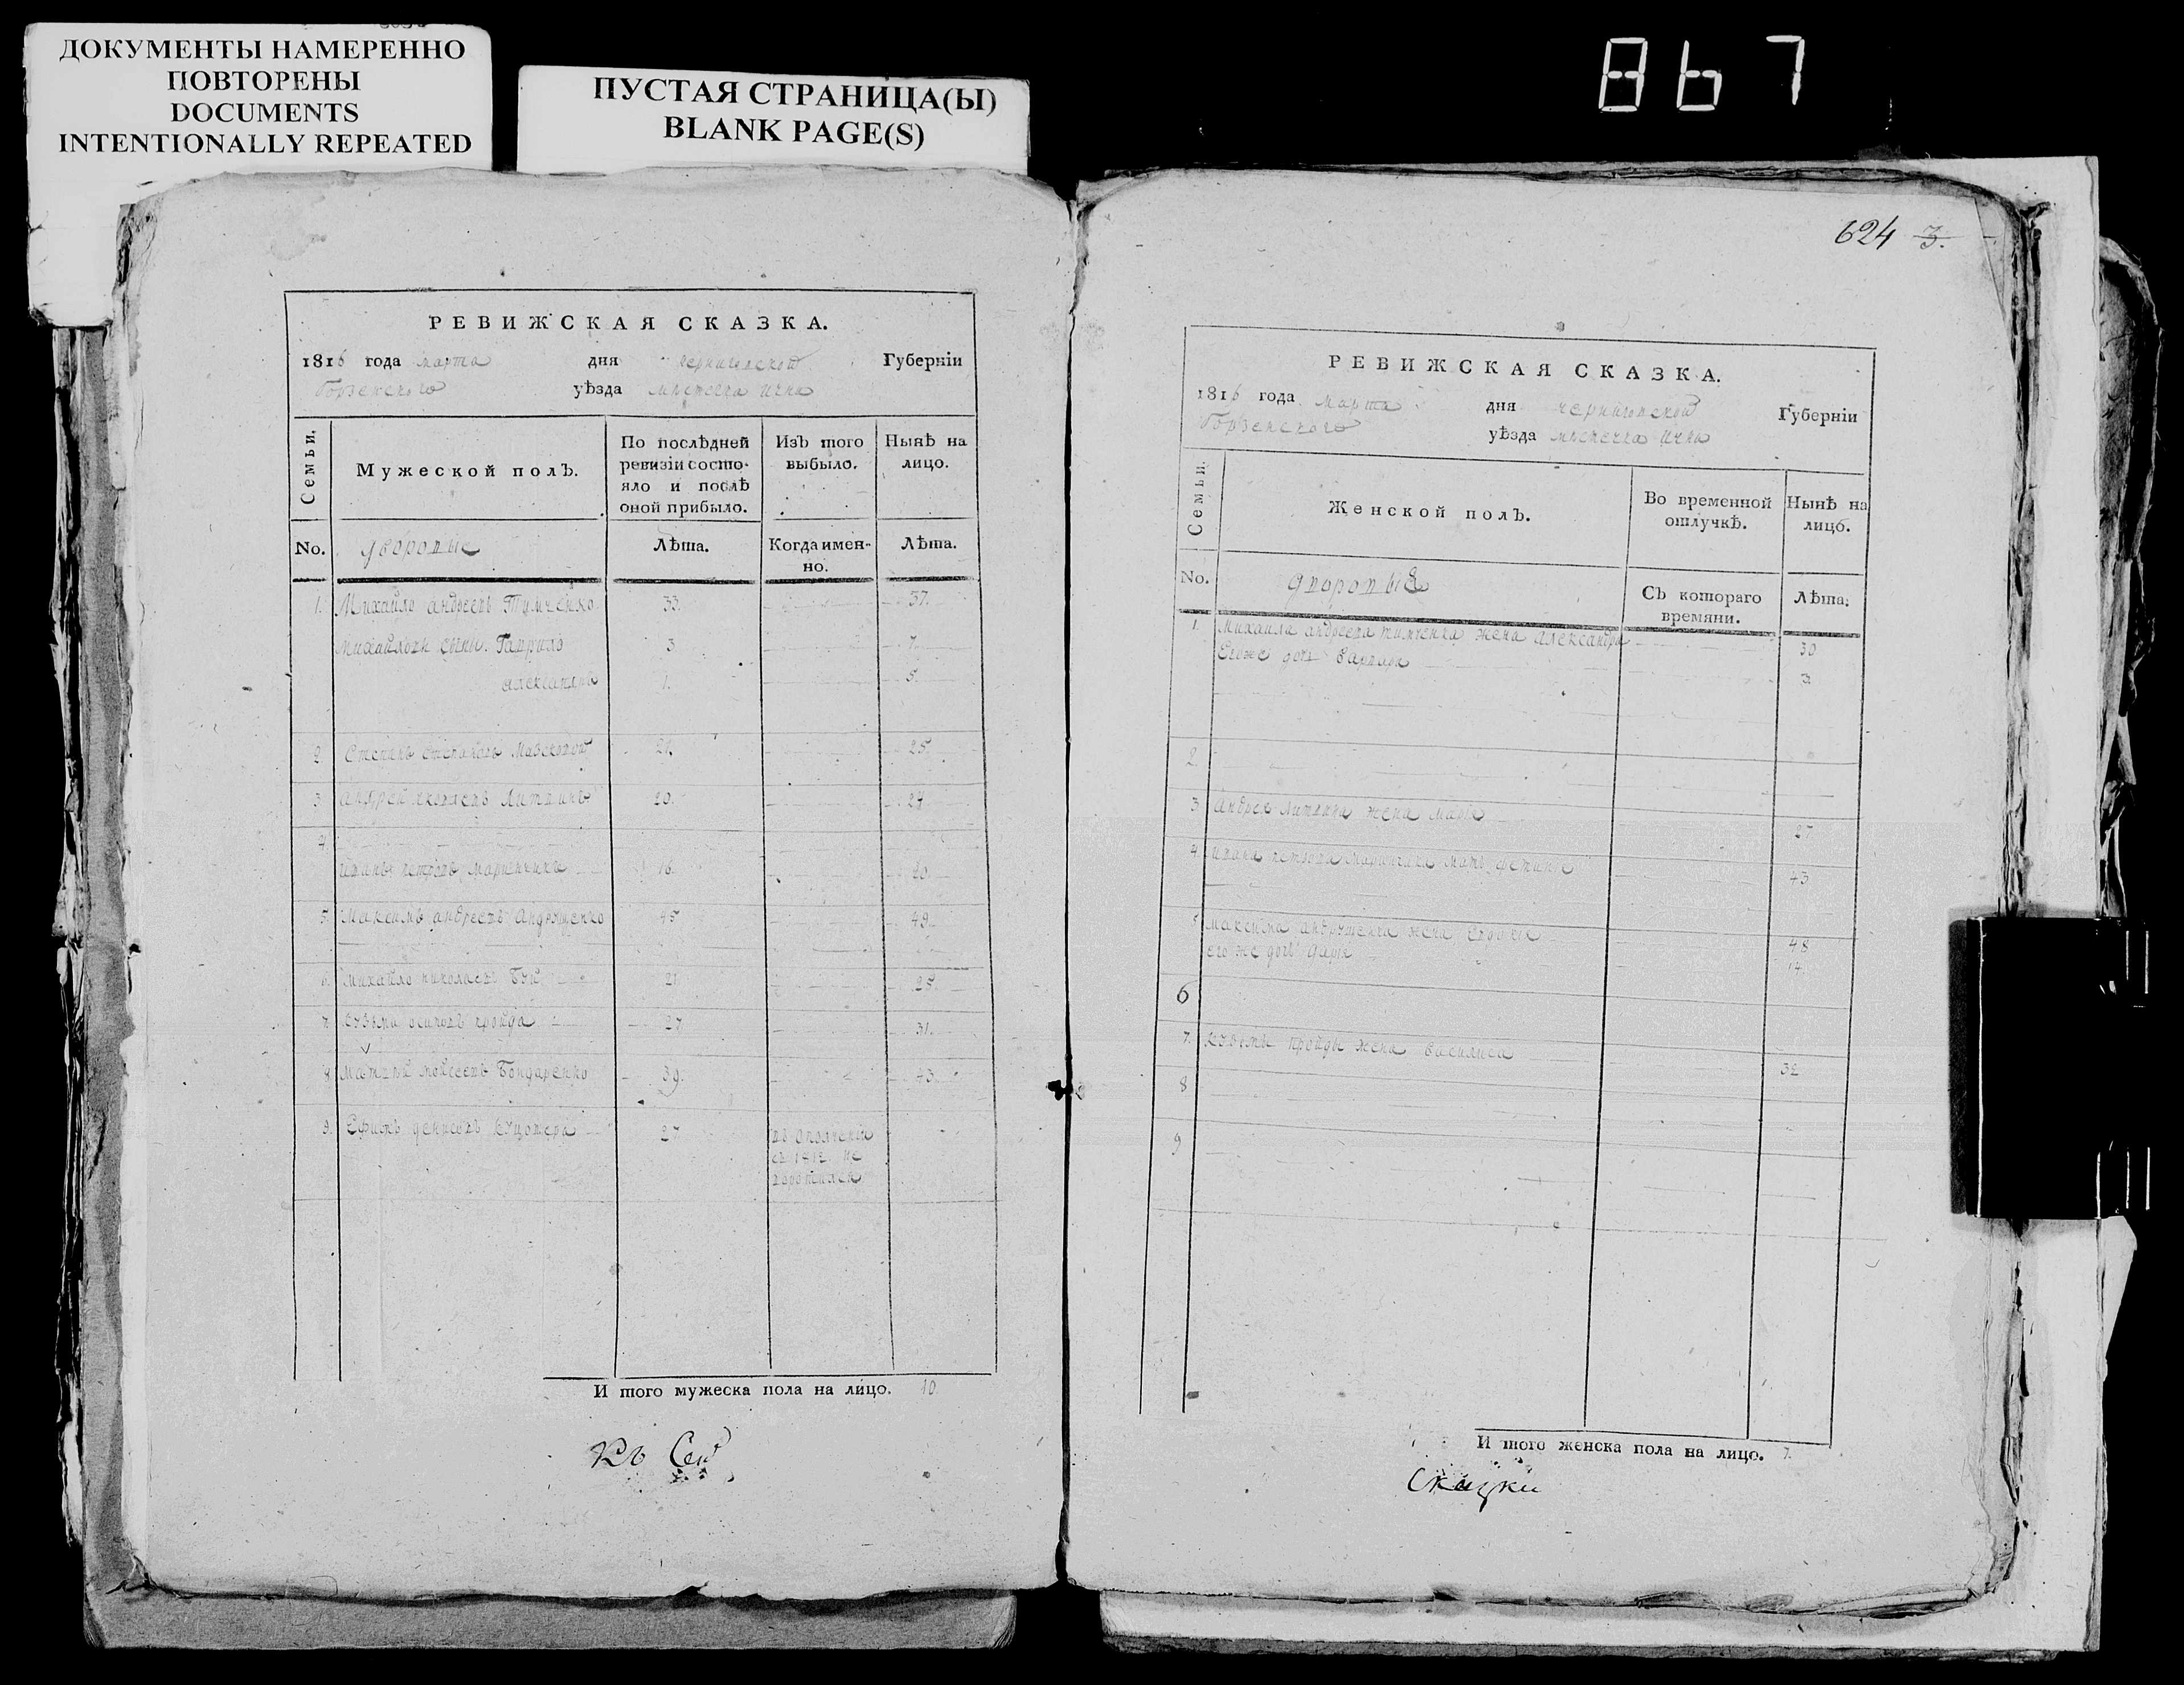 ДОКУМЕНТЫ НАМЕРЕННО
ПОВТОРЕНЫ
DOCUMENTS
INTENTIONALLY REPEATED
ПУСТАЯ СТРАНИЦА(Ы)
BLANK PAGE(S)
867
РЕВИЖСКАЯ СКАЗКА.
1816 года марта дня Черниговской Губерніи
Борзенского уѣзда местечка Ични
Семьи.
Мужеской полЪ.
По послѣдней
ревизіи состо-
яло и послѣ
оной прибыло.
ИзЪ того
выбыло.
Нынѣ на
лицо.
No. дворовые Лѣта. Когда имен-
но. Лѣта.
1. Михайло андреевъ Тимченко 33. 37.
Михайловы сыны. Гаврило 3. 7.
александръ 1. 5.
2 Степанъ степановъ 21. 25
3. андрей яковлевъ Литвинъ 20. 24
4
иванъ петровъ 16. 20.
5. Максимъ андреевъ Андрущенко 45 49.
6. михайло николаевъ Буй 21 25.
7 кузьма осиповъ пройда 27 31.
8 матвей мойсеевъ Бондаренко 39. 43.
9. Ефимъ денисовъ 27 въ ополчении
съ 1812 не
воротился
И того мужеска пола на лицо. 10
Къ Сей
624 3.
РЕВИЖСКАЯ СКАЗКА.
1816 года марта дня черниговской Губерніи
Борзенского уѣзда местечка Ични
Семьи.
Женской полЪ.
Во временной
отлучкѣ.
Нынѣ на
лицо.
No. дворовые СЪ котораго
времяни. Лѣта.
1. михаила андреева тимченка жена александра 30
Егоже дочь варвара 3
2
3. андрея литвина жена марія 27
4 ивана петрова мать 43
5 максима андрущенка жена 48
его же дочь дарія 14.
6
7. кузьмы пройды жена василиса 32
8
9
И того женска пола на лицо. 7.
Сказки